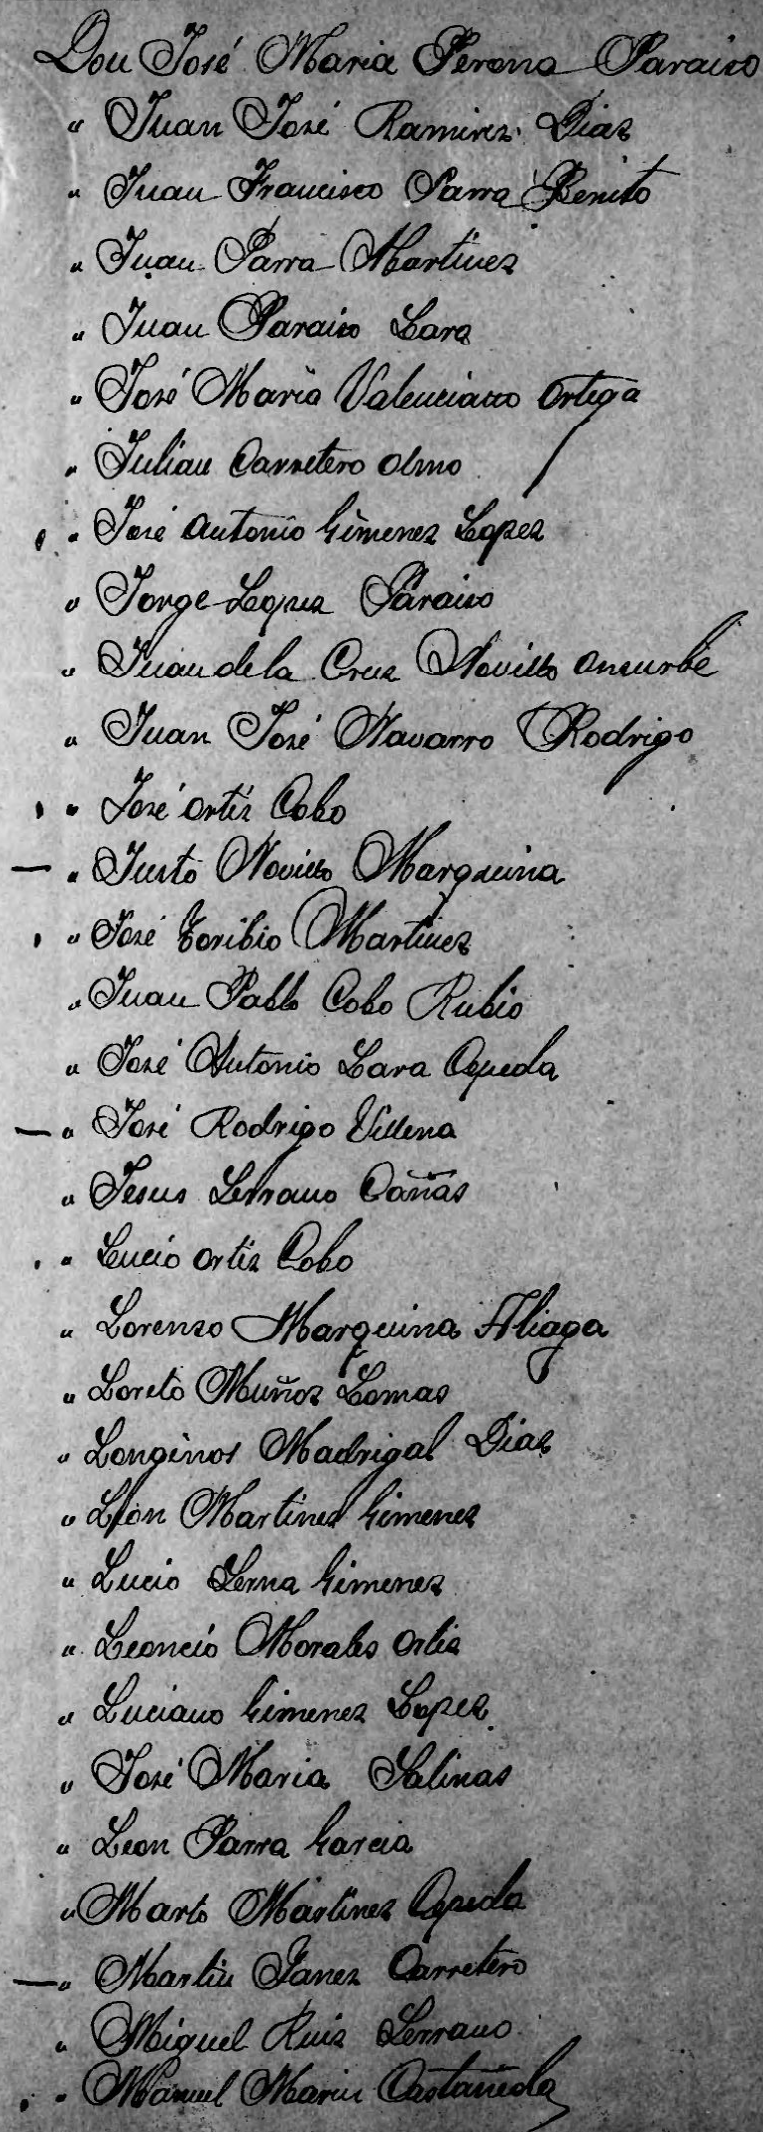 Don José Maria Perona Paraiso
" Juan José Ramirez Diaz
" Juan Francisco Parra Benito
" Juan Parra Martinez
" Juan Paraiso Lara
" José Maria Valenciano Ortega
" Julian Carretero Olmo
" José Antonio Gimenez Lopez
" Jorge Lopez Paraiso
" Juan de la Cruz Novillo
" Juan José Navarro Rodrigo
" José Ortiz Cobo
" Justo Novillo Marquina
" José Toribio Martinez
" Juan Pablo Cobo Rubio
" José Antonio Lara Cepeda
" José Rodrigo Villena
" Jesus Serrano Cañas
" Lucio Ortiz Cobo
" Lorenzo Marquina Aliaga
" Loreto Muñoz Lomas
" Longinos Madrigal Diaz
" Leon Martinez Gimenez
" Lucio Serna Gimenez
" Leoncio Morales Ortiz
" Luciano Gimenez Lopez
" José Maria Salinas
" Leon Parra Garcia
" Marto Martinez Cepeda
" Martin Yanez Carretero
" Miguel Ruiz Serrano
" Manuel Marin Castañeda